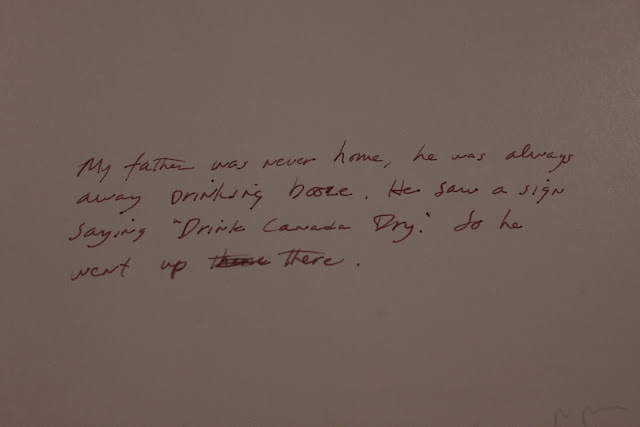 My father was never home, he was always
away drinking booze. He saw a sign
saying "Drink Canada Dry." So he
went up there.